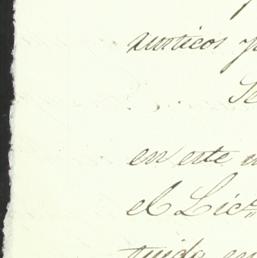 rusticos y
Se
en este
el Licdo
tuida en